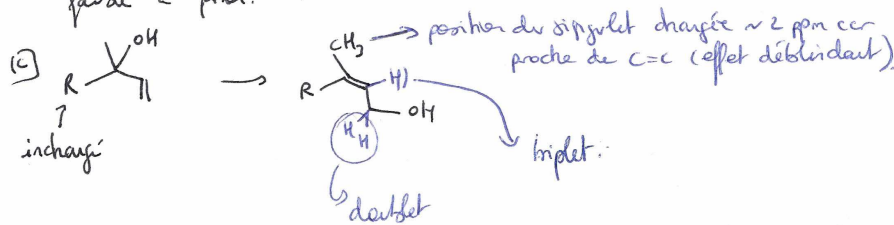 OH
(C)
R
inchangé
CH3 → position du singulet changée ~ 2 ppm car
proche de C=C (effet déblindant).
R
H
OH
H
H
triplet.
doublet